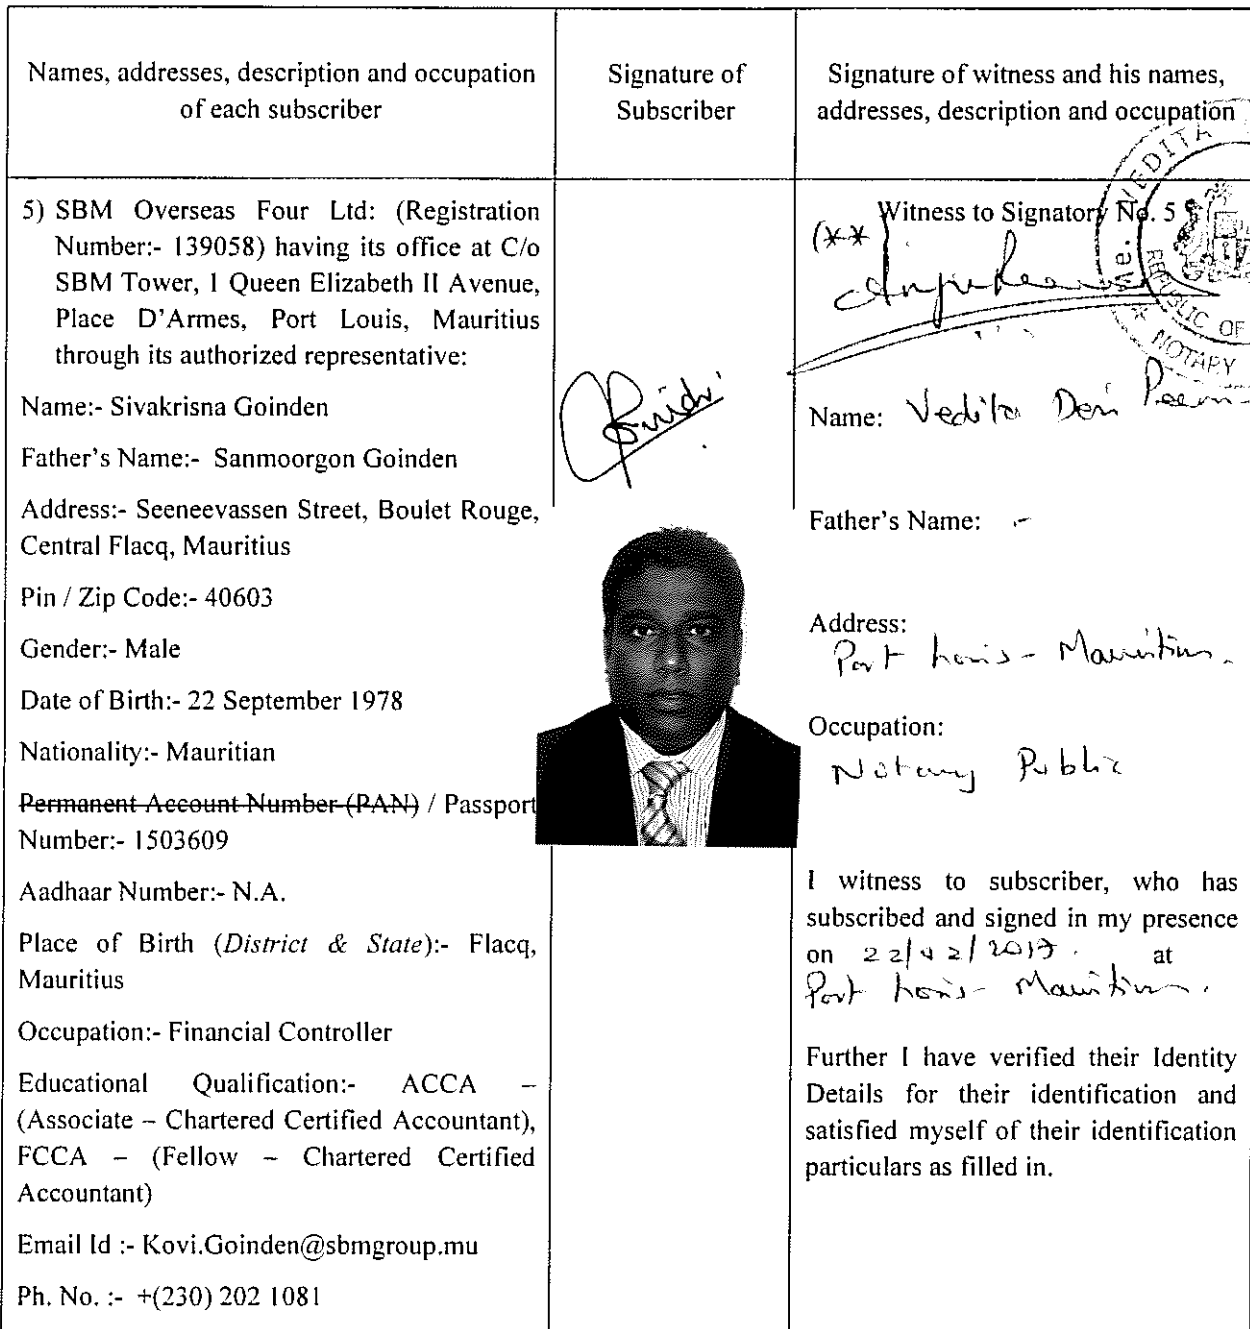 Names, addresses, description and occupation
of each subscriber
Signature of
Subscriber
Signature of witness and his names,
addresses, description and occupation
5) SBM Overseas Four Ltd: (Registration
Number:- 139058) having its office at C/o
SBM Tower, 1 Queen Elizabeth II Avenue,
Place D'Armes, Port Louis, Mauritius
through its authorized representative:
Name:- Sivakrisna Goinden
Father's Name:- Sanmoorgon Goinden
Address:- Seeneevassen Street, Boulet Rouge,
Central Flacq, Mauritius
Pin / Zip Code:- 40603
Gender:- Male
Date of Birth:- 22 September 1978
Nationality:- Mauritian
Permanent Account Number (PAN) / Passport
Number:- 1503609
Aadhaar Number:- N.A.
Place of Birth (District & State):- Flacq,
Mauritius
Occupation:- Financial Controller
Educational Qualification:- ACCA –
(Associate – Chartered Certified Accountant),
FCCA – (Fellow – Chartered Certified
Accountant)
Email Id :- Kovi.Goinden@sbmgroup.mu
Ph. No. :- +(230) 202 1081
Witness to Signatory No. 5
(**)
Me. VEDITA
REPUBLIC OF
NOTARY
Name: Vedita Devi
Father's Name: -
Address:
Port Louis - Mauritius.
Occupation:
Notary Public
I witness to subscriber, who has
subscribed and signed in my presence
on 22/02/2017. at
Port Louis - Mauritius.
Further I have verified their Identity
Details for their identification and
satisfied myself of their identification
particulars as filled in.